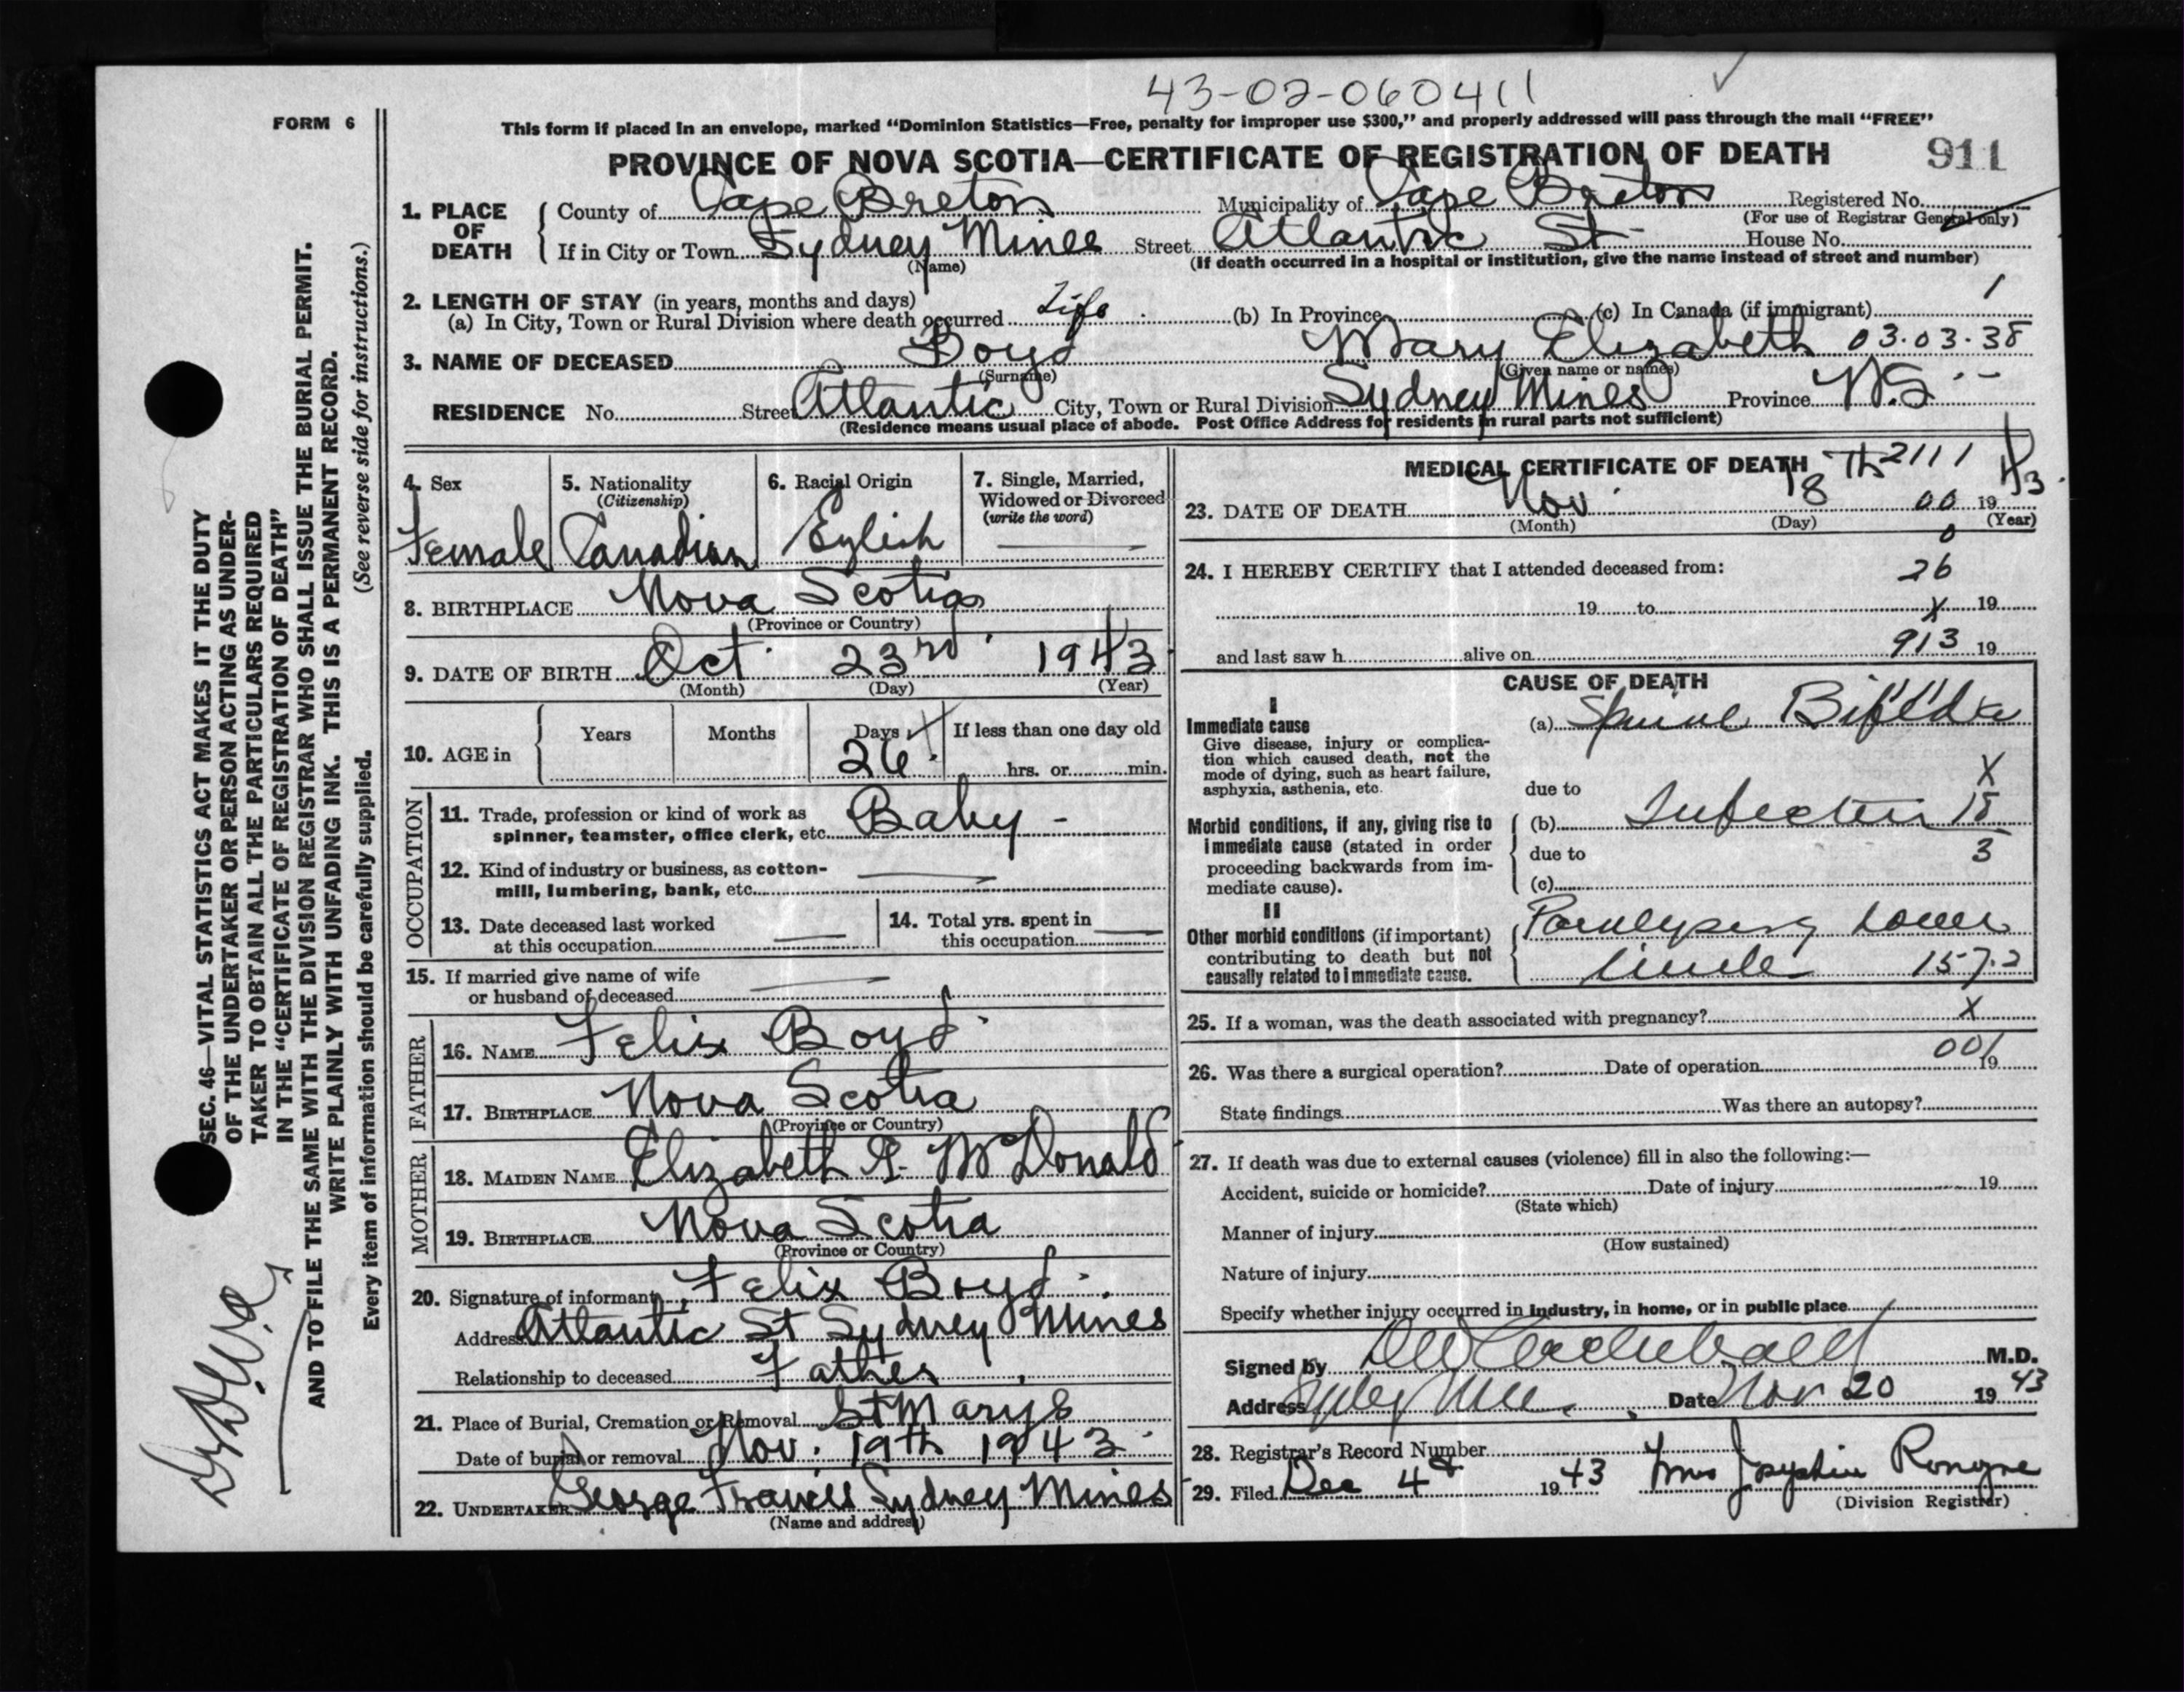 43-02-060411
FORM 6
This form if placed in an envelope, marked “Dominion Statistics—Free, penalty for improper use $300,” and properly addressed will pass through the mail “FREE”
PROVINCE OF NOVA SCOTIA—CERTIFICATE OF REGISTRATION OF DEATH 911
1. PLACE OF DEATH County of Cape Breton Municipality of Cape Breton Registered No.
(For use of Registrar General only)
If in City or Town Sydney Mines Street Atlantic St House No.
(Name) (If death occurred in a hospital or institution, give the name instead of street and number)
2. LENGTH OF STAY (in years, months and days)
(a) In City, Town or Rural Division where death occurred Life (b) In Province (c) In Canada (if immigrant) 1
3. NAME OF DECEASED Boyd Mary Elizabeth 03.03.38
(Surname) (Given name or names)
RESIDENCE No. Street Atlantic City, Town or Rural Division Sydney Mines Province N.S
(Residence means usual place of abode. Post Office Address for residents in rural parts not sufficient)
4. Sex Female
5. Nationality (Citizenship) Canadian
6. Racial Origin Eylish
7. Single, Married, Widowed or Divorced (write the word) —
8. BIRTHPLACE Nova Scotia
(Province or Country)
9. DATE OF BIRTH Oct 23rd 1943
(Month) (Day) (Year)
10. AGE in Years Months Days X If less than one day old
26 hrs. or min.
OCCUPATION
11. Trade, profession or kind of work as
spinner, teamster, office clerk, etc. Baby -
12. Kind of industry or business, as cotton-
mill, lumbering, bank, etc. —
13. Date deceased last worked
at this occupation —
14. Total yrs. spent in
this occupation —
15. If married give name of wife
or husband of deceased —
FATHER
16. NAME Felix Boyd
17. BIRTHPLACE Nova Scotia
(Province or Country)
MOTHER
18. MAIDEN NAME Elizabeth McDonald
19. BIRTHPLACE Nova Scotia
(Province or Country)
20. Signature of informant Felix Boyd
Address Atlantic St Sydney Mines
Relationship to deceased Father
21. Place of Burial, Cremation or Removal St Marys
Date of burial or removal Nov. 19th 1943
22. UNDERTAKER George Francis Sydney Mines
(Name and address)
MEDICAL CERTIFICATE OF DEATH 2111
23. DATE OF DEATH Nov 18 Th 00 1943
(Month) (Day) (Year)
0
24. I HEREBY CERTIFY that I attended deceased from: 26
19 to X 19
and last saw h alive on 913 19
CAUSE OF DEATH
I
Immediate cause
Give disease, injury or complica-
tion which caused death, not the
mode of dying, such as heart failure,
asphyxia, asthenia, etc.
(a) Spinal Bifida
due to X
Morbid conditions, if any, giving rise to
immediate cause (stated in order
proceeding backwards from im-
mediate cause).
(b) Infection 18
due to 3
(c)
II
Other morbid conditions (if important)
contributing to death but not
causally related to immediate cause.
Paralysis lower
157.2
25. If a woman, was the death associated with pregnancy? X
26. Was there a surgical operation? Date of operation 001 19
State findings Was there an autopsy?
27. If death was due to external causes (violence) fill in also the following:—
Accident, suicide or homicide? Date of injury 19
(State which)
Manner of injury
(How sustained)
Nature of injury
Specify whether injury occurred in industry, in home, or in public place
Signed by M.D.
Address Date Nov 20 1943
28. Registrar's Record Number
29. Filed Dec 4th 1943 Mrs Josephine
(Division Registrar)
SEC. 46—VITAL STATISTICS ACT MAKES IT THE DUTY
OF THE UNDERTAKER OR PERSON ACTING AS UNDER-
TAKER TO OBTAIN ALL THE PARTICULARS REQUIRED
IN THE “CERTIFICATE OF REGISTRATION OF DEATH”
AND TO FILE THE SAME WITH THE DIVISION REGISTRAR WHO SHALL ISSUE THE BURIAL PERMIT.
WRITE PLAINLY WITH UNFADING INK. THIS IS A PERMANENT RECORD.
(See reverse side for instructions.)
Every item of information should be carefully supplied.